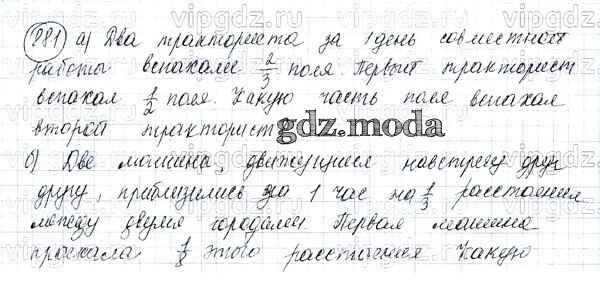 881 а) Два тракториста за 1 день совместной
работы вспахали 2/3 поля. Первый тракторист
вспахал 1/2 поля. Какую часть поля вспахал
второй тракторист
gdz.moda
б) Две машины, движущиеся навстречу друг
другу, приблизились за 1 час на 1/3 расстояния
между двумя городами Первая машина
проехала 1/8 этого расстояния Какую